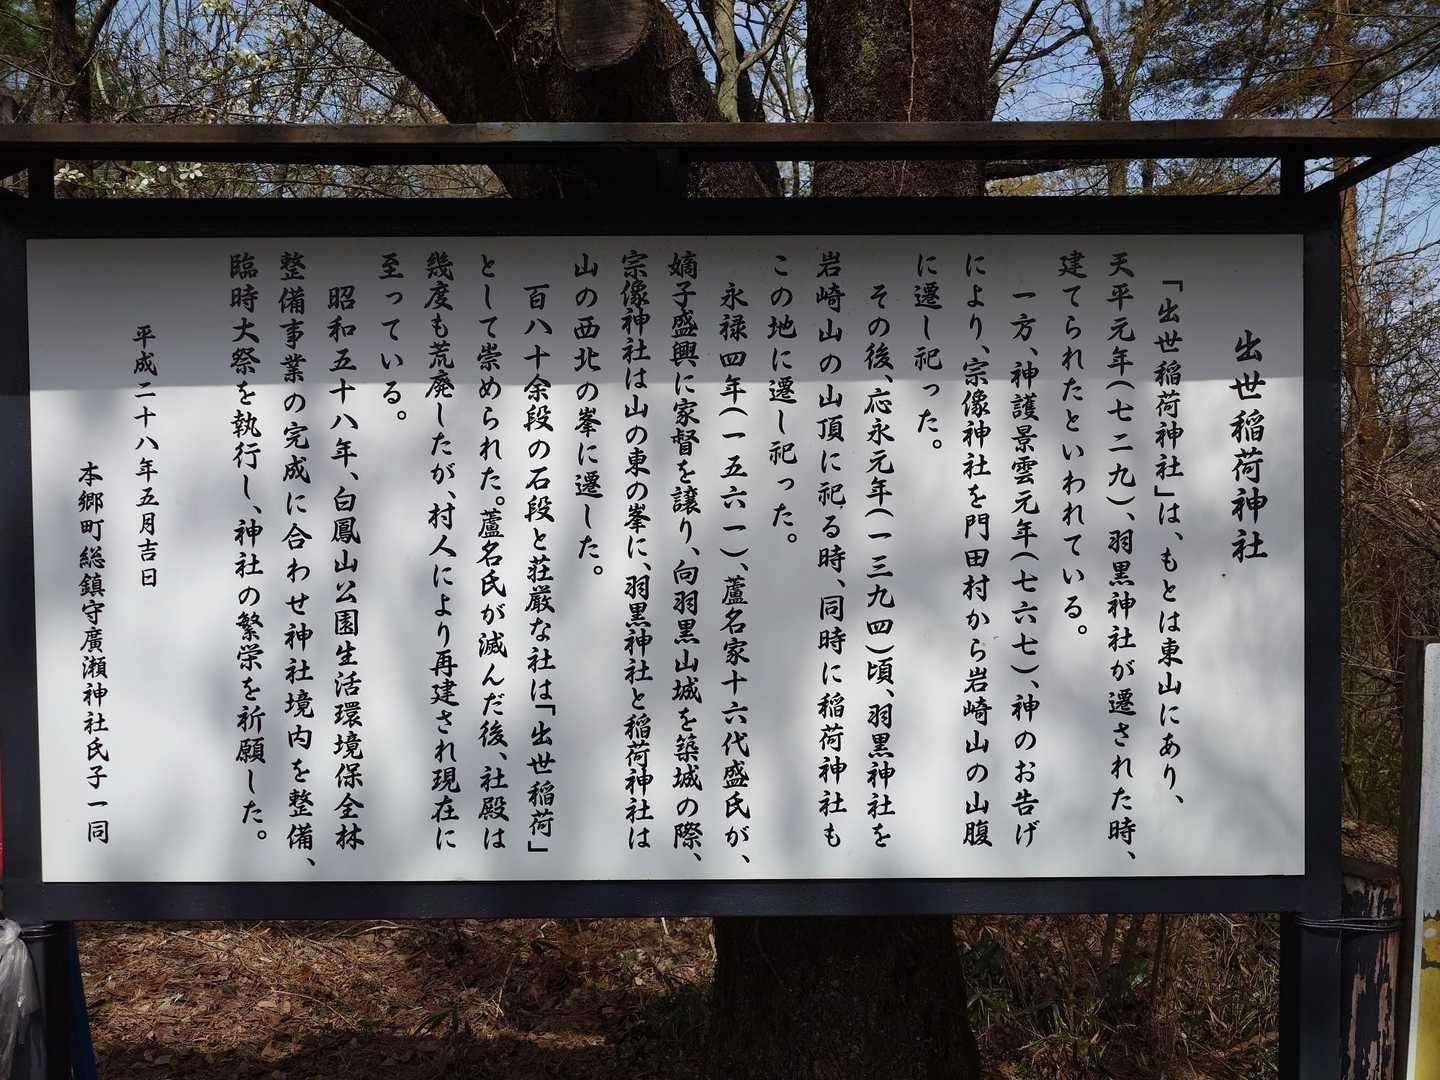 出世稲荷神社
「出世稲荷神社」は、もとは東山にあり、
天平元年(七二九)、羽黒神社が遷された時、
建てられたといわれている。
一方、神護景雲元年(七六七)、神のお告げ
により、宗像神社を門田村から岩崎山の山腹
に遷し祀った。
その後、応永元年(一三九四)頃、羽黒神社を
岩崎山の山頂に祀る時、同時に稲荷神社も
この地に遷し祀った。
永禄四年(一五六一)、蘆名家十六代盛氏が、
嫡子盛興に家督を譲り、向羽黒山城を築城の際、
宗像神社は山の東の峯に、羽黒神社と稲荷神社は
山の西北の峯に遷した。
百八十余段の石段と荘厳な社は「出世稲荷」
として崇められた。蘆名氏が滅んだ後、社殿は
幾度も荒廃したが、村人により再建され現在に
至っている。
昭和五十八年、白鳳山公園生活環境保全林
整備事業の完成に合わせ神社境内を整備、
臨時大祭を執行し、神社の繁栄を祈願した。
平成二十八年五月吉日
本郷町総鎮守廣瀬神社氏子一同